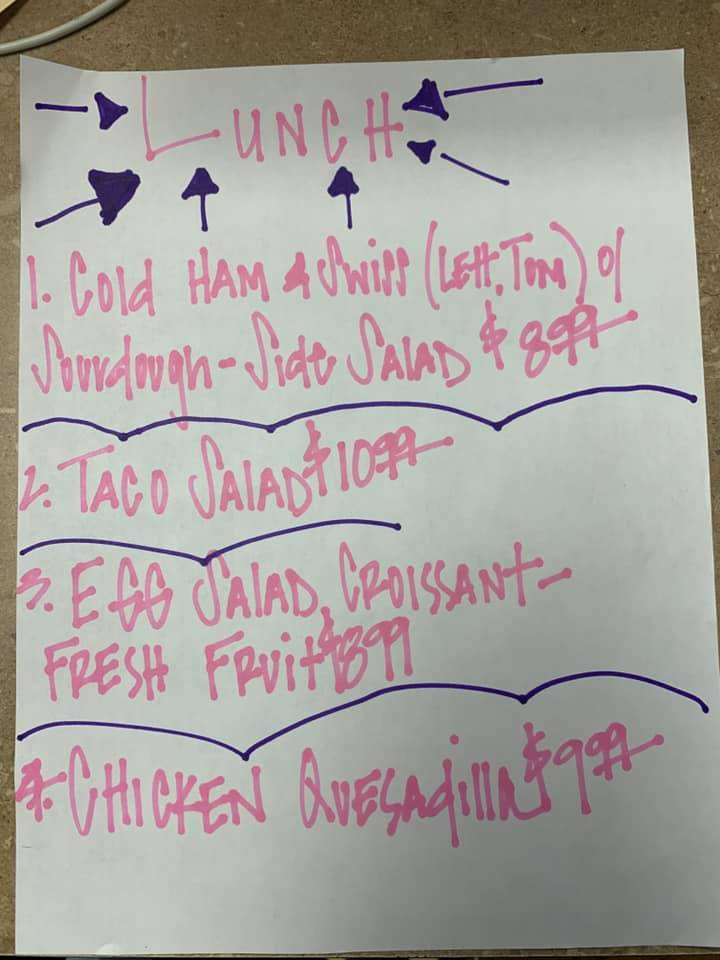 LUNCH
1. Cold HAM & Swiss (LETT, TOM) o/
Sourdough - Side SALAD $899
2. TACO SALAD $1099
3. EGG SALAD, CROISSANT -
FRESH FRUIT $899
4. CHICKEN QUESADILLA $999